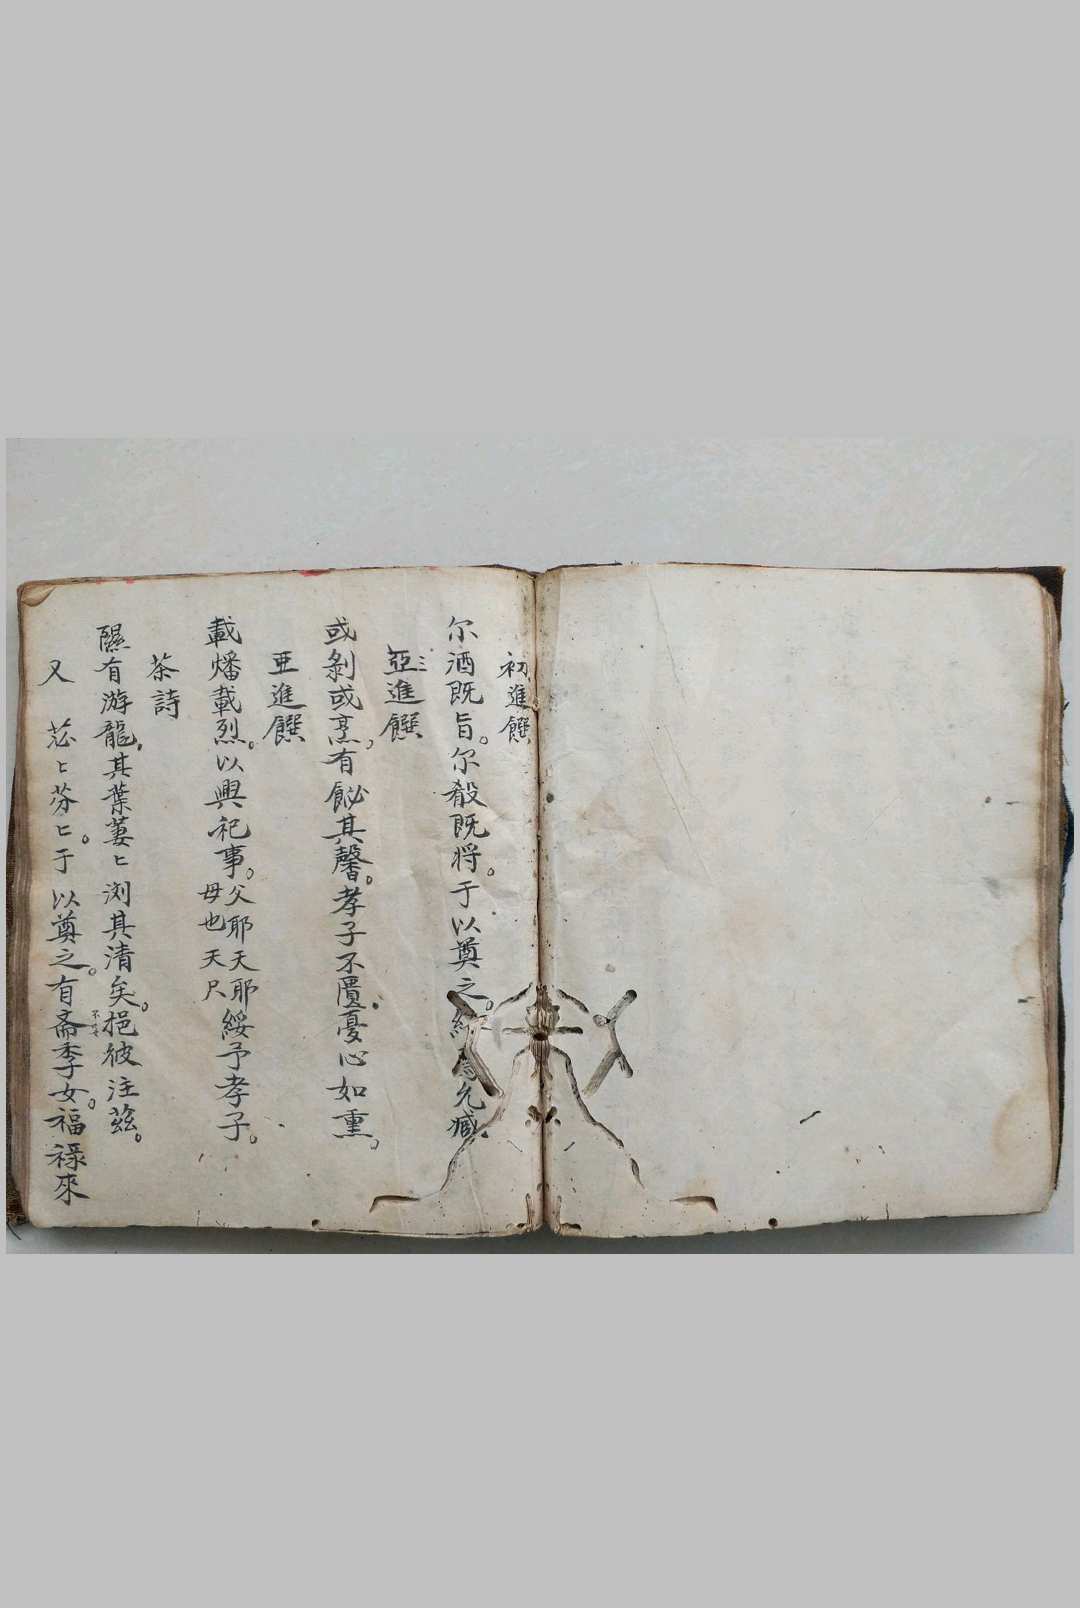 初進饌
尔酒既旨。尔殽既将。于以奠之。終焉允臧
亞進饌
或剝或烹。有飶其馨。孝子不匱。憂心如熏。
亜進饌
載燔載烈。以興祀事。父耶天耶母也天尺綏予孝子。
茶詩
隰有游龍。其葉萋〻浏其清矣。挹彼注茲。
又 苾〻芬〻。于以奠之。有斋季女。福禄來